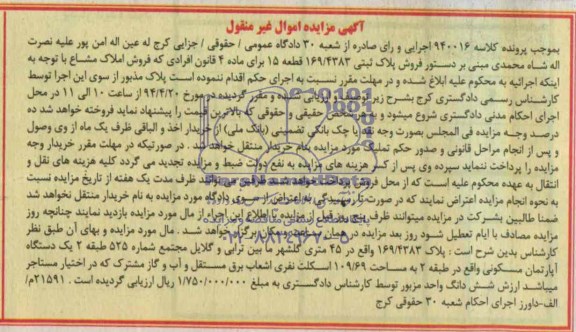 آگهی مزایده اموال غیر منقول
بموجب پرونده کلاسه ۹۴۰۰۱۶ اجرایی و رای صادره از شعبه ۳۰ دادگاه عمومی / حقوقی / جزایی کرج له عین اله امن پور علیه نصرت
اله شاه محمدی مبنی بر دستور فروش پلاک ثبتی ۱۶۹/۴۳۸۳ قطعه ۱۵ برای ماده ۴ قانون افرادی که فروش املاک مشاع با توجه به
اینکه اجرائیه به محکوم علیه ابلاغ شده و در مهلت مقرر نسبت به اجرای حکم اقدام ننموده است پلاک مذبور از سوی این اجرا توسط
کارشناس رسمی دادگستری کرج بشرح زیر ارزیابی شده و مقرر گردیده در مورخ ۹۴/۴/۲۰ از ساعت ۱۰ الی ۱۱ در محل
اجرای احکام مدنی دادگستری شروع میشود و به حقیقی و حقوقی که بالاترین قیمت را پیشنهاد نماید فروخته خواهد شد ده
درصد وجه مزایده فی المجلس بصورت وجه نقد یا چک بانکی تضمینی (بانک ملی) از خریدار اخذ و الباقی ظرف یک ماه از وی وصول
و پس از انجام مراحل قانونی و صدور حکم تملیک مورد مزایده بنام خریدار منتقل خواهد شد . در صورتیکه در مهلت مقرر خریدار وجه
مزایده را پرداخت ننماید سپرده وی پس از کسر هزینه های مزایده به نفع دولت ضبط و مزایده تجدید می گردد کلیه هزینه های نقل و
انتقال به عهده محکوم علیه است که از محل فروش پرداخت خواهد شد طرفین می توانند ظرف مدت یک هفته از تاریخ مزایده نسبت
به نحوه انجام مزایده اعتراض نمایند که در صورت رسیدگی به اعتراض از سوی دادگاه مورد مزایده به نام خریدار منتقل نخواهد شد
ضمنا طالبین بشرکت در مزایده میتوانند ظرف قبل از مزایده با اطلاع این اجرا از مال مورد مزایده بازدید نمایند چنانچه روز
مزایده مصادف با ایام تعطیل شود روز بعد مزایده در همان ساعت و مکان برگزار خواهد شد . مال مورد مزایده و بهای آن طبق نظر
کارشناس بدین شرح است : پلاک ۱۶۹/۴۳۸۳ واقع در ۴۵ متری گلشهر ما بین ترابی و گلایل مجتمع شماره ۵۲۵ طبقه ۲ یک دستگاه
آپارتمان مسکونی واقع در طبقه ۲ به مساحت ۱۰۹/۶۹ اسکلت نفری اشعاب برق مستقل و آب و گاز مشترک که در اختیار مستاجر
میباشد ارزش شش دانگ واحد مزبور توسط کارشناس دادگستری به مبلغ ۱/۷۵۰/۰۰۰/۰۰۰ ریال ارزیابی گردیده است . ۲۱۵۹۱/م
الف-داورز اجرای احکام شعبه ۳۰ حقوقی کرج